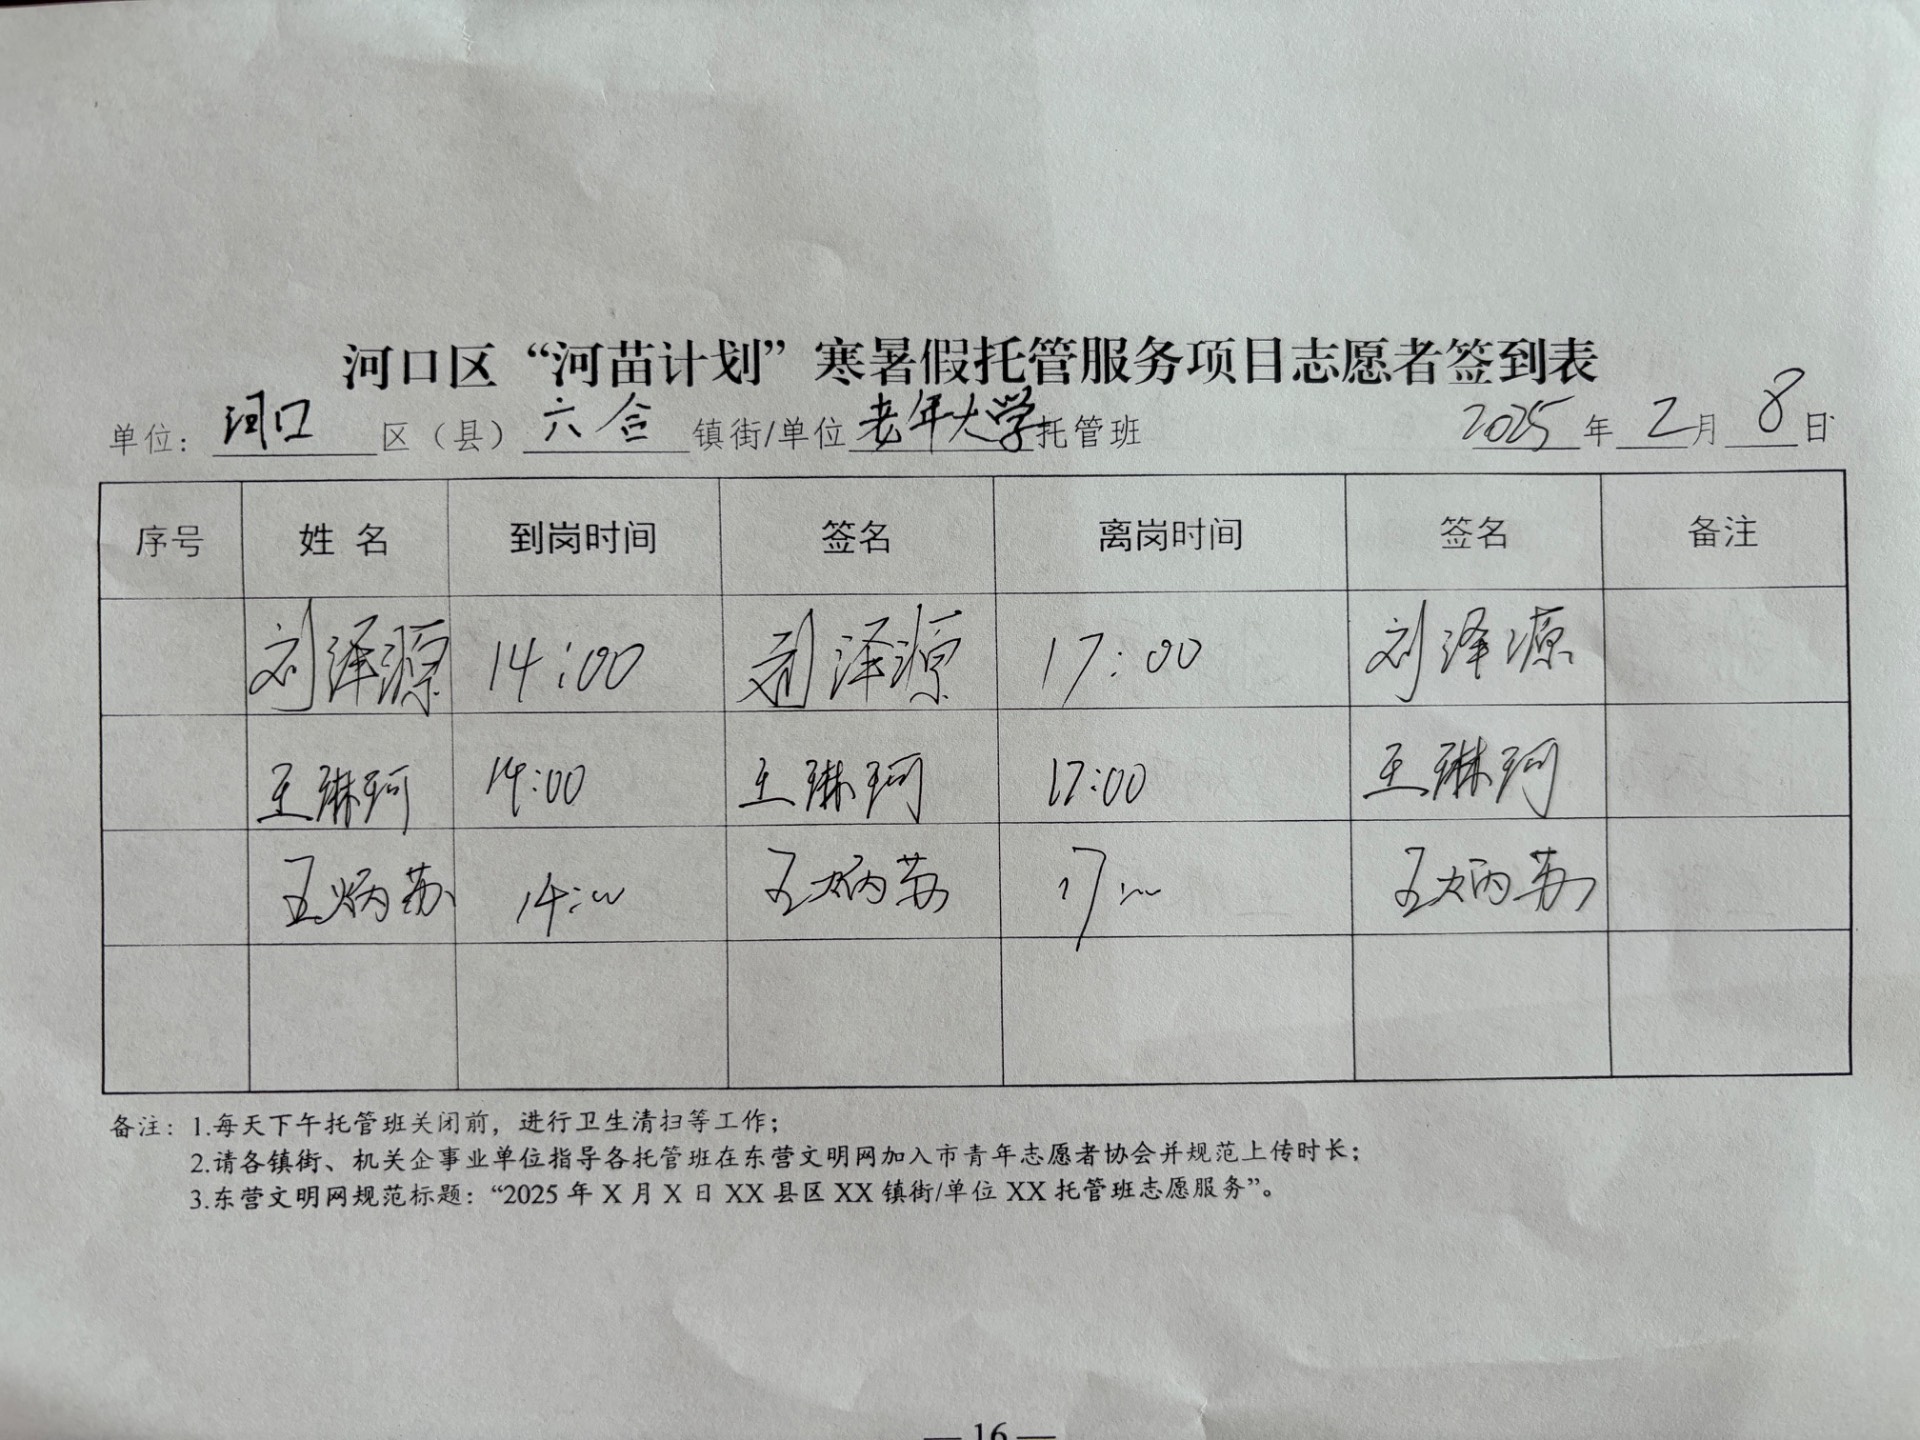 河口区“河苗计划”寒暑假托管服务项目志愿者签到表
单位：河口区（县）六合镇街/单位老年大学托管班 2025年2月8日
序号 姓名 到岗时间 签名 离岗时间 签名 备注
刘泽源 14:00 刘泽源 17:00 刘泽源
王琳珂 14:00 王琳珂 17:00 王琳珂
王炳苏 14:00 王炳苏 17:00 王炳苏
备注：1.每天下午托管班关闭前，进行卫生清扫等工作；
2.请各镇街、机关企事业单位指导各托管班在东营文明网加入市青年志愿者协会并规范上传时长；
3.东营文明网规范标题：“2025年X月X日XX县区XX镇街/单位XX托管班志愿服务”。
— 16 —